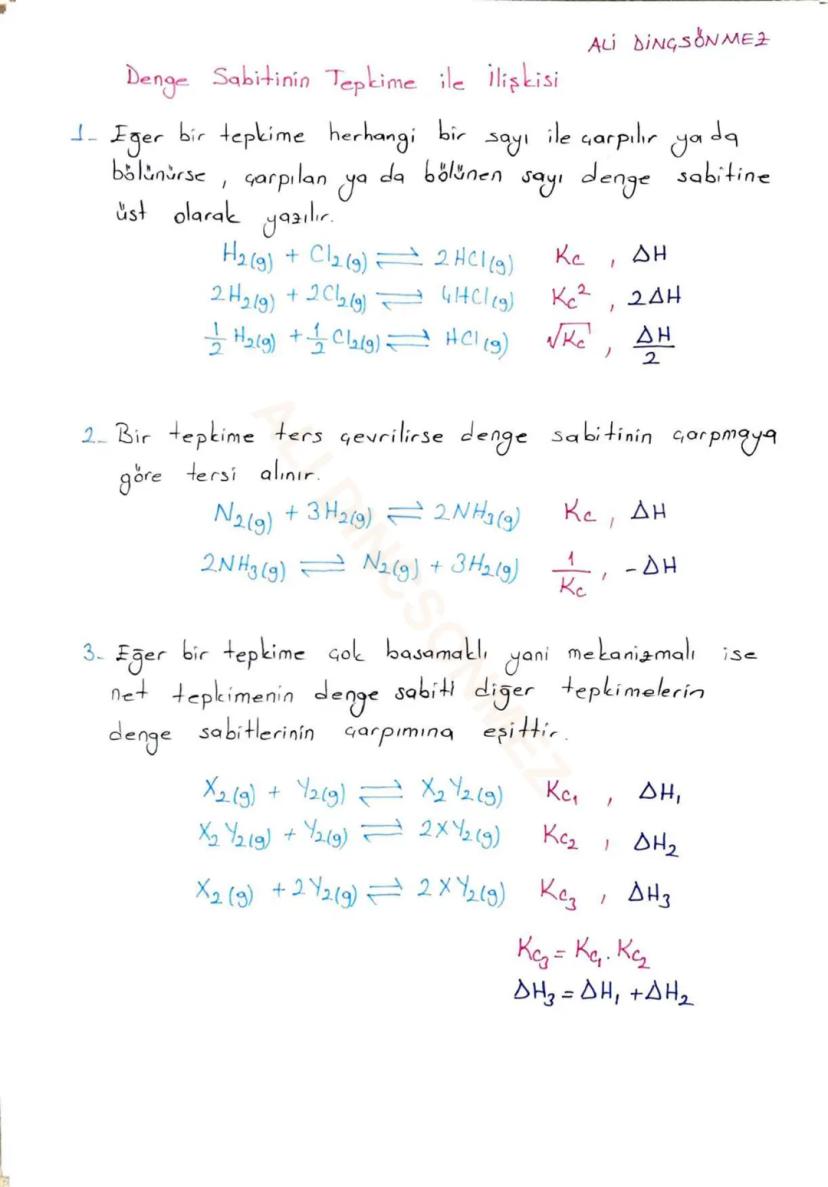 ALİ DİNÇSÖNMEZ
Denge Sabitinin Tepkime ile İlişkisi
1- Eğer bir tepkime herhangi bir sayı ile çarpılır ya da
bölünürse, çarpılan ya da bölünen sayı denge sabitine
üst olarak yazılır.
H₂(g) + Cl₂(g) ⇌ 2HCl(g) Kc , ΔH
2H₂(g) + 2Cl₂(g) ⇌ 4HCl(g) Kc² , 2ΔH
1/2 H₂(g) + 1/2 Cl₂(g) ⇌ HCl(g) √Kc , ΔH/2
2- Bir tepkime ters çevrilirse denge sabitinin çarpmaya
göre tersi alınır.
N₂(g) + 3H₂(g) ⇌ 2NH₃(g) Kc , ΔH
2NH₃(g) ⇌ N₂(g) + 3H₂(g) 1/Kc , -ΔH
3- Eğer bir tepkime çok basamaklı yani mekanizmalı ise
net tepkimenin denge sabiti diğer tepkimelerin
denge sabitlerinin çarpımına eşittir.
X₂(g) + Y₂(g) ⇌ X₂Y₂(g) Kc₁ , ΔH₁
X₂Y₂(g) + Y₂(g) ⇌ 2XY₂(g) Kc₂ , ΔH₂
X₂(g) + 2Y₂(g) ⇌ 2XY₂(g) Kc₃ , ΔH₃
Kc₃ = Kc₁ . Kc₂
ΔH₃ = ΔH₁ + ΔH₂
ALI DINCSONMEZ